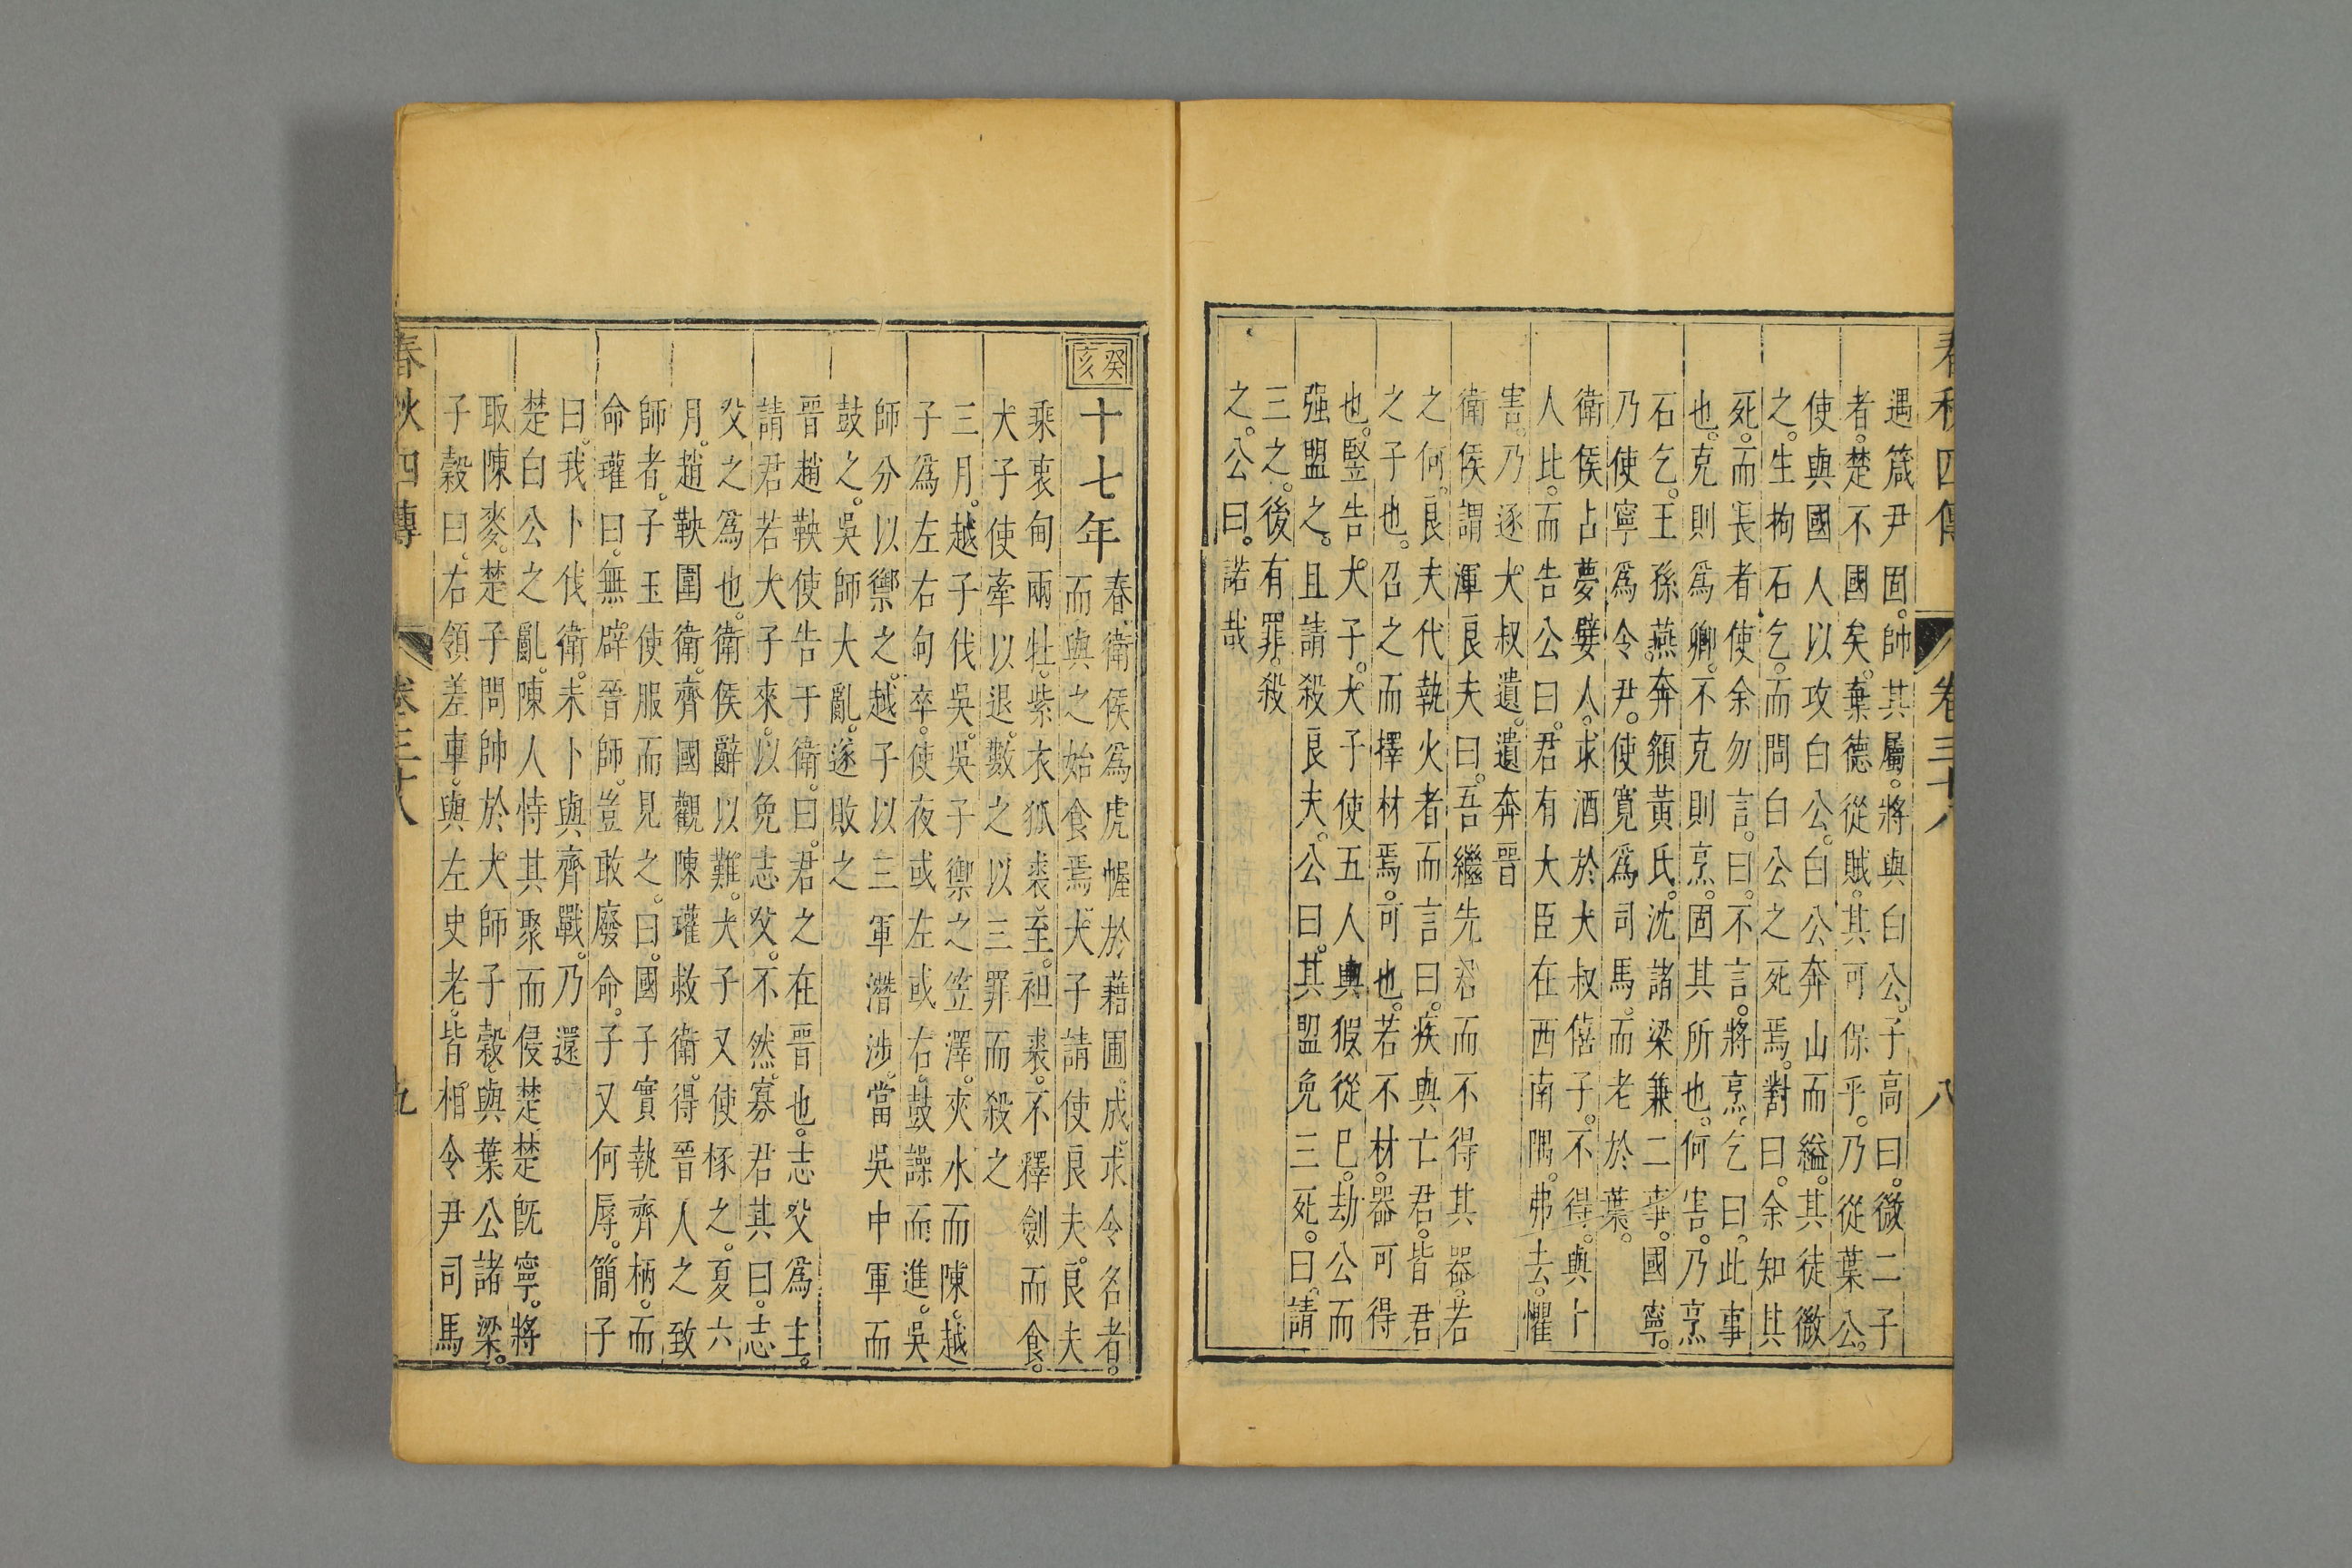 春秋四傳 卷三十八 八
遇箴尹固。帥其屬。將與白公。子高曰。微二子
者。楚不國矣。棄德從賊。其可保乎。乃從葉公。
使與國人以攻白公。白公奔山而縊。其徒微
之。生拘石乞。而問白公之死焉。對曰。余知其
死。而長者使余勿言。曰。不言。將烹。乞曰。此事
也。克則爲卿。不克則烹。固其所也。何害。乃烹
石乞。王孫燕。奔頯黃氏。沈諸梁兼二事。國寧。
乃使寧爲令尹。使寬爲司馬。而老於葉。
衛侯占夢嬖人。求酒於大叔僖子。不得。與卜
人比。而告公曰。君有大臣在西南隅。弗去。懼
害。乃逐大叔遺。遺奔晉
衛侯謂渾良夫曰。吾繼先君而不得其器。若
之何。良夫代執火者而言曰。疾與亡君。皆君
之子也。召之而擇材焉。可也。若不材。器可得
也。豎告大子。大子使五人輿豭從己。劫公而
强盟之。且請殺良夫。公曰。其盟免三死。曰。請
三之。後有罪。殺
之。公曰。諾哉
癸亥
十七年
春衛侯爲虎幄於藉圃。成。求令名者。
而與之始食焉。大子請使良夫。良夫
乘衷甸兩牡。紫衣狐裘。至。袒裘。不釋劍而食。
大子使牽以退。數之以三罪而殺之
三月。越子伐吳。吳子禦之笠澤。夾水而陳。越
子爲左右句卒。使夜或左或右。鼓譟而進。吳
師分以禦之。越子以三軍潛涉。當吳中軍而
鼓之。吳師大亂。遂敗之
晉趙鞅使告于衛。曰。君之在晉也。志父爲主。
請君若大子來。以免志父。不然。寡君其曰。志
父之爲也。衛侯辭以難。大子又使椓之。夏六
月。趙鞅圍衛。齊國觀陳瓘救衛。得晉人之致
師者。子玉使服而見之。曰。國子實執齊柄。而
命瓘曰。無辟晉師。豈敢廢命。子又何辱。簡子
曰。我卜伐衛。未卜與齊戰。乃還
楚白公之亂。陳人恃其聚而侵楚。楚旣寧。將
取陳麥。楚子問帥於大師子穀。與葉公諸梁。
子穀曰。右領差車。與左史老。皆相令尹司馬
春秋四傳 卷三十八 九